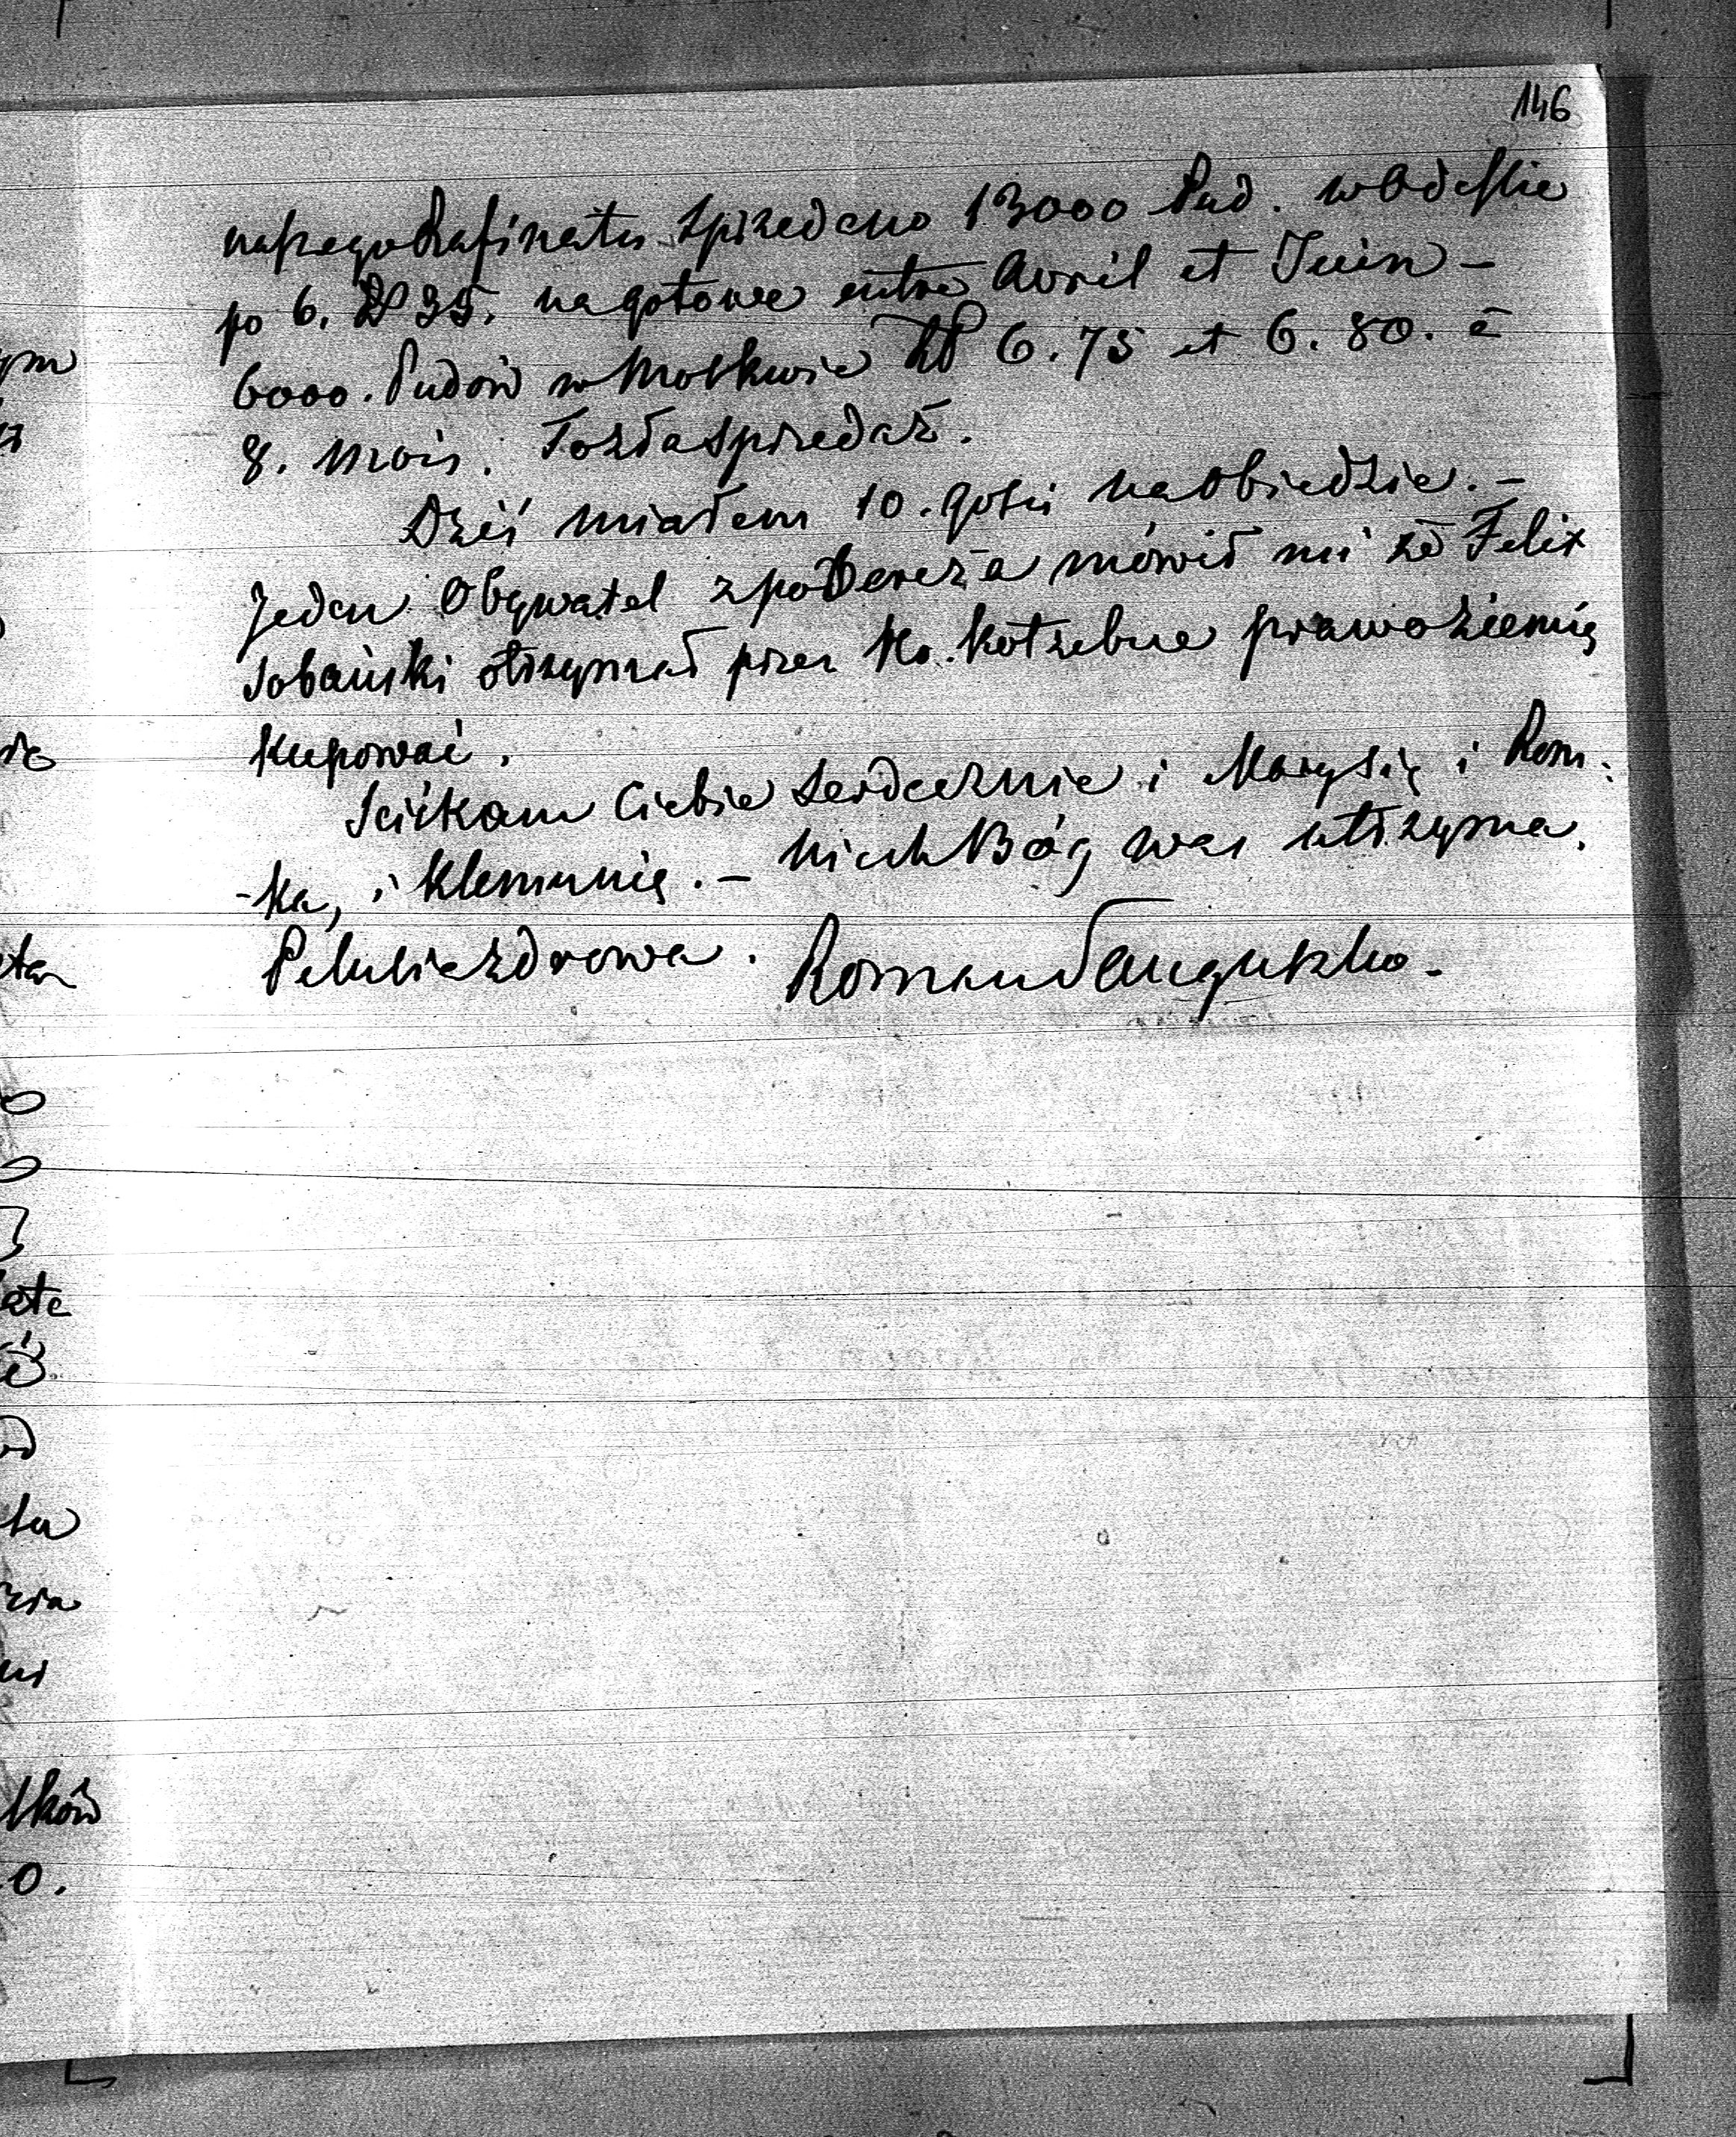 146
naszego Rafinatu sprzedano 13000 Pud. w Odessie
po 6. 35. na gotowe entre Avril et Juin –
6000. Pudów w Moskwie 6.75 et 6.80. é
8. mois. To zła sprzedaż.
Dziś miałem 10. gości na obiedzie. –
Jeden Obywatel z pod mówił mi że Felix
Sobański otrzymał przez Ko. Kotzebue prawo ziemię
kupować.
Sciskam Ciebie serdecznie i Marysię i Rom:
-ka, i Klemunię. – niech Bóg was utrzyma.
zdrowa. Roman Sanguszko.